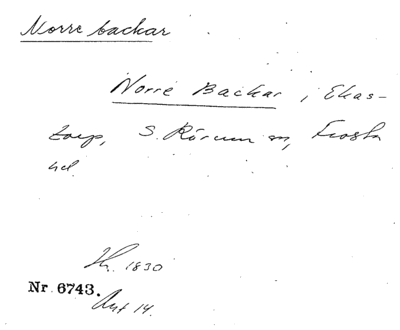 Norre backar
Norre Backar, Ekas-
torp, S. Rörum sn, Frosta
hd.
Th. 1830
Nr 6743.
Akt 14.